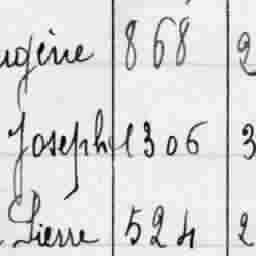 ugène 868 2
Joseph 1306 3
Pierre 524 2